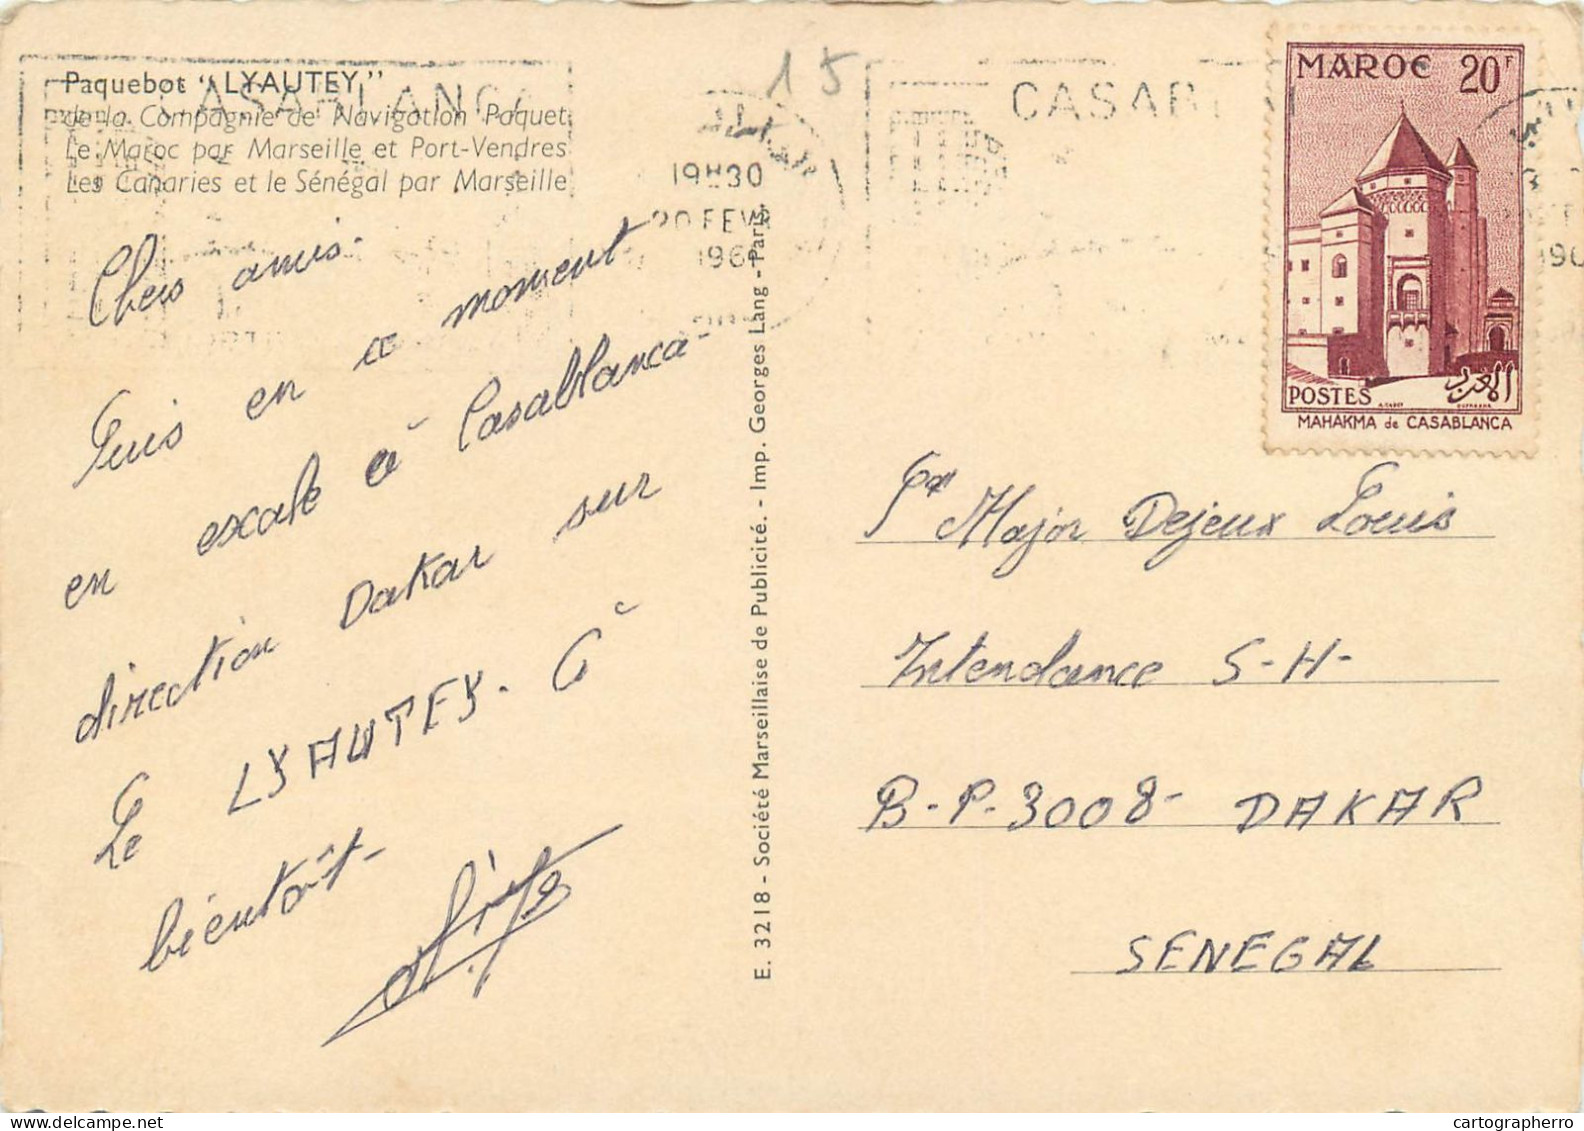 Paquebot "LYAUTEY"
de la Compagnie de Navigation Paquet
Le Maroc par Marseille et Port-Vendres
Les Canaries et le Sénégal par Marseille
CASABLANCA
15
19H30
20 FEV
196
CASABL
MAROC 20F
POSTES المغرب
MAHAKMA de CASABLANCA
Chers amis.
Suis en ce moment
en escale à Casablanca -
direction Dakar sur
Le LYAUTEY. A
bientôt -
E. 3218 - Société Marseillaise de Publicité. - Imp. Georges Lang - Paris.
Major Dejeux Louis
Intendance S-H-
B-P-3008- DAKAR
SENEGAL
cartographerro